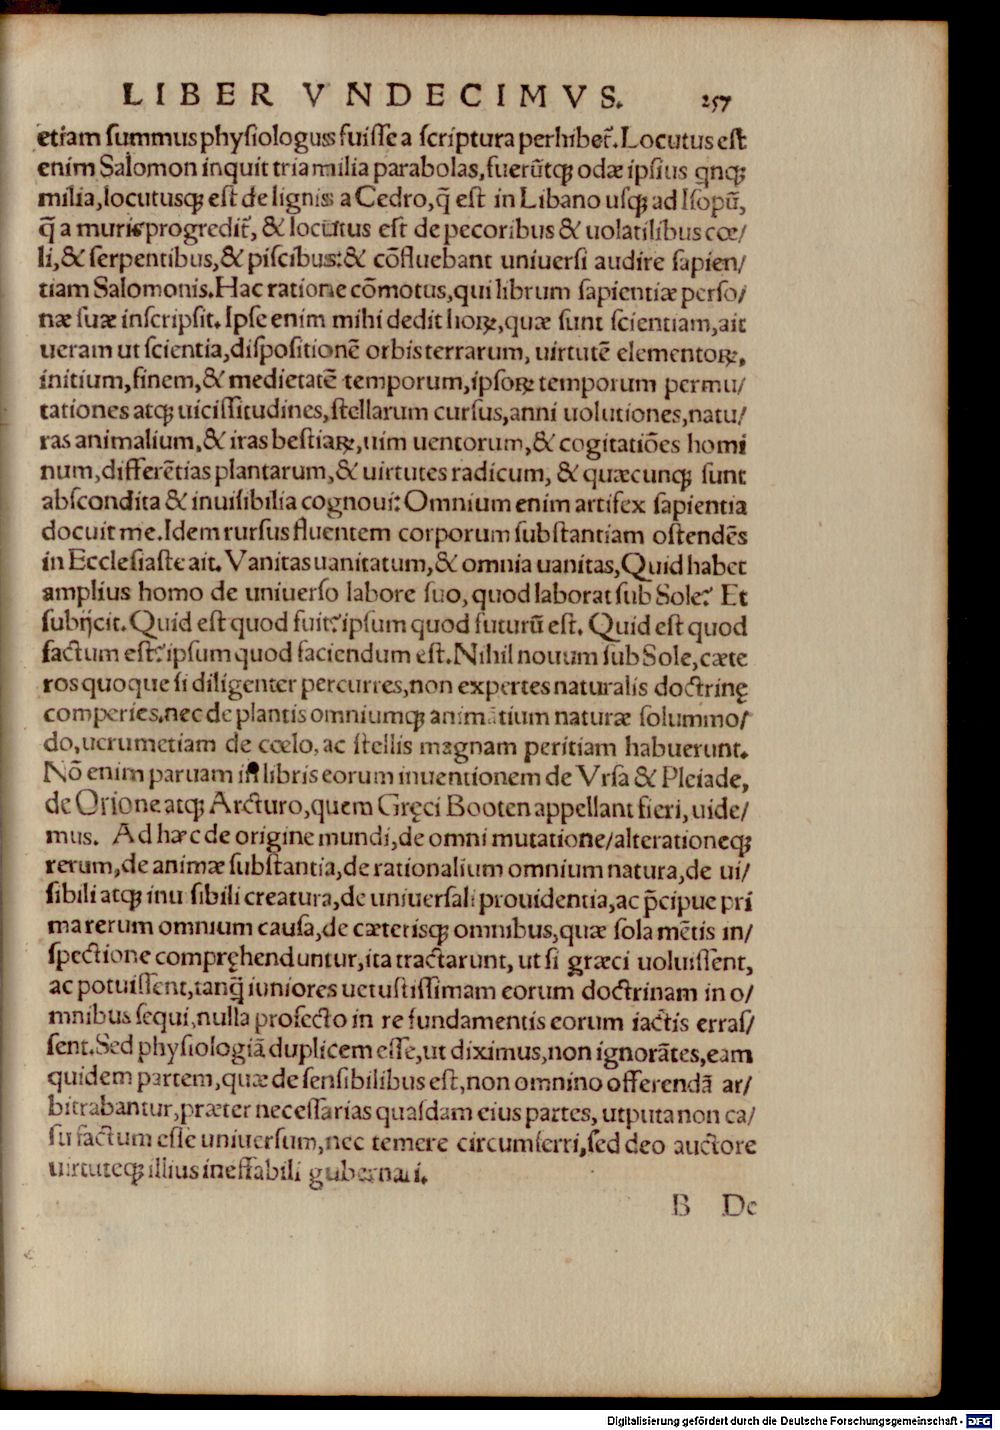 LIBER VNDECIMVS. 257
etiam summus physiologus fuisse a scriptura perhibet̃. Locutus est
enim Salomon inquit tria milia parabolas, fuerũtqꝫ odæ ipsius qnqꝫ
milia, locutusqꝫ est de lignis a Cedro, q̃ est in Libano usqꝫ ad Isopũ,
q̃ a muris progredit̃, & locutus est de pecoribus & uolatilibus cœ/
li, & serpentibus, & piscibus: & cõfluebant uniuersi audire sapien/
tiam Salomonis. Hac ratione cõmotus, qui librum sapientiæ perso/
næ suæ inscripsit. Ipse enim mihi dedit hoꝝ, quæ sunt scientiam, ait
ueram ut scientia, dispositionẽ orbis terrarum, uirtutẽ elementoꝝ,
initium, finem, & medietatẽ temporum, ipsoꝝ temporum permu/
tationes atqꝫ uicissitudines, stellarum cursus, anni uolutiones, natu/
ras animalium, & iras bestiaꝝ, uim uentorum, & cogitatiões homi
num, differẽtias plantarum, & uirtutes radicum, & quæcunqꝫ sunt
abscondita & inuisibilia cognoui: Omnium enim artifex sapientia
docuit me. Idem rursus fluentem corporum substantiam ostendẽs
in Ecclesiaste ait. Vanitas uanitatum, & omnia uanitas, Quid habet
amplius homo de uniuerso labore suo, quod laborat sub Sole? Et
subijcit. Quid est quod fuit? ipsum quod futurũ est. Quid est quod
factum est? ipsum quod faciendum est. Nihil nouum sub Sole, cæte
ros quoque si diligenter percurres, non expertes naturalis doctrinę
comperies, nec de plantis omniumqꝫ animãtium naturæ solummo/
do, uerumetiam de cœlo, ac stellis magnam peritiam habuerunt.
Nõ enim paruam in libris eorum inuentionem de Vrsa & Pleiade,
de Orione atqꝫ Arcturo, quem Gręci Booten appellant fieri, uide/
mus. Ad hæc de origine mundi, de omni mutatione/alterationeqꝫ
rerum, de animæ substantia, de rationalium omnium natura, de ui/
sibili atqꝫ inu sibili creatura, de uniuersali prouidentia, ac p̃cipue pri
ma rerum omnium causa, de cæterisqꝫ omnibus, quæ sola mẽtis in/
spectione compręhenduntur, ita tractarunt, ut si græci uoluissent,
ac potuissent, tanq̃ iuniores uetustissimam eorum doctrinam in o/
mnibus sequi, nulla profecto in re fundamentis eorum iactis erras/
sent. Sed physiologiã duplicem esse, ut diximus, non ignorãtes, eam
quidem partem, quæ de sensibilibus est, non omnino offerendã ar/
bitrabantur, præter necessarias quasdam eius partes, utputa non ca/
su factum esse uniuersum, nec temere circumferri, sed deo auctore
uirtuteqꝫ illius ineffabili gubernari.
B De
Digitalisierung gefördert durch die Deutsche Forschungsgemeinschaft - DFG